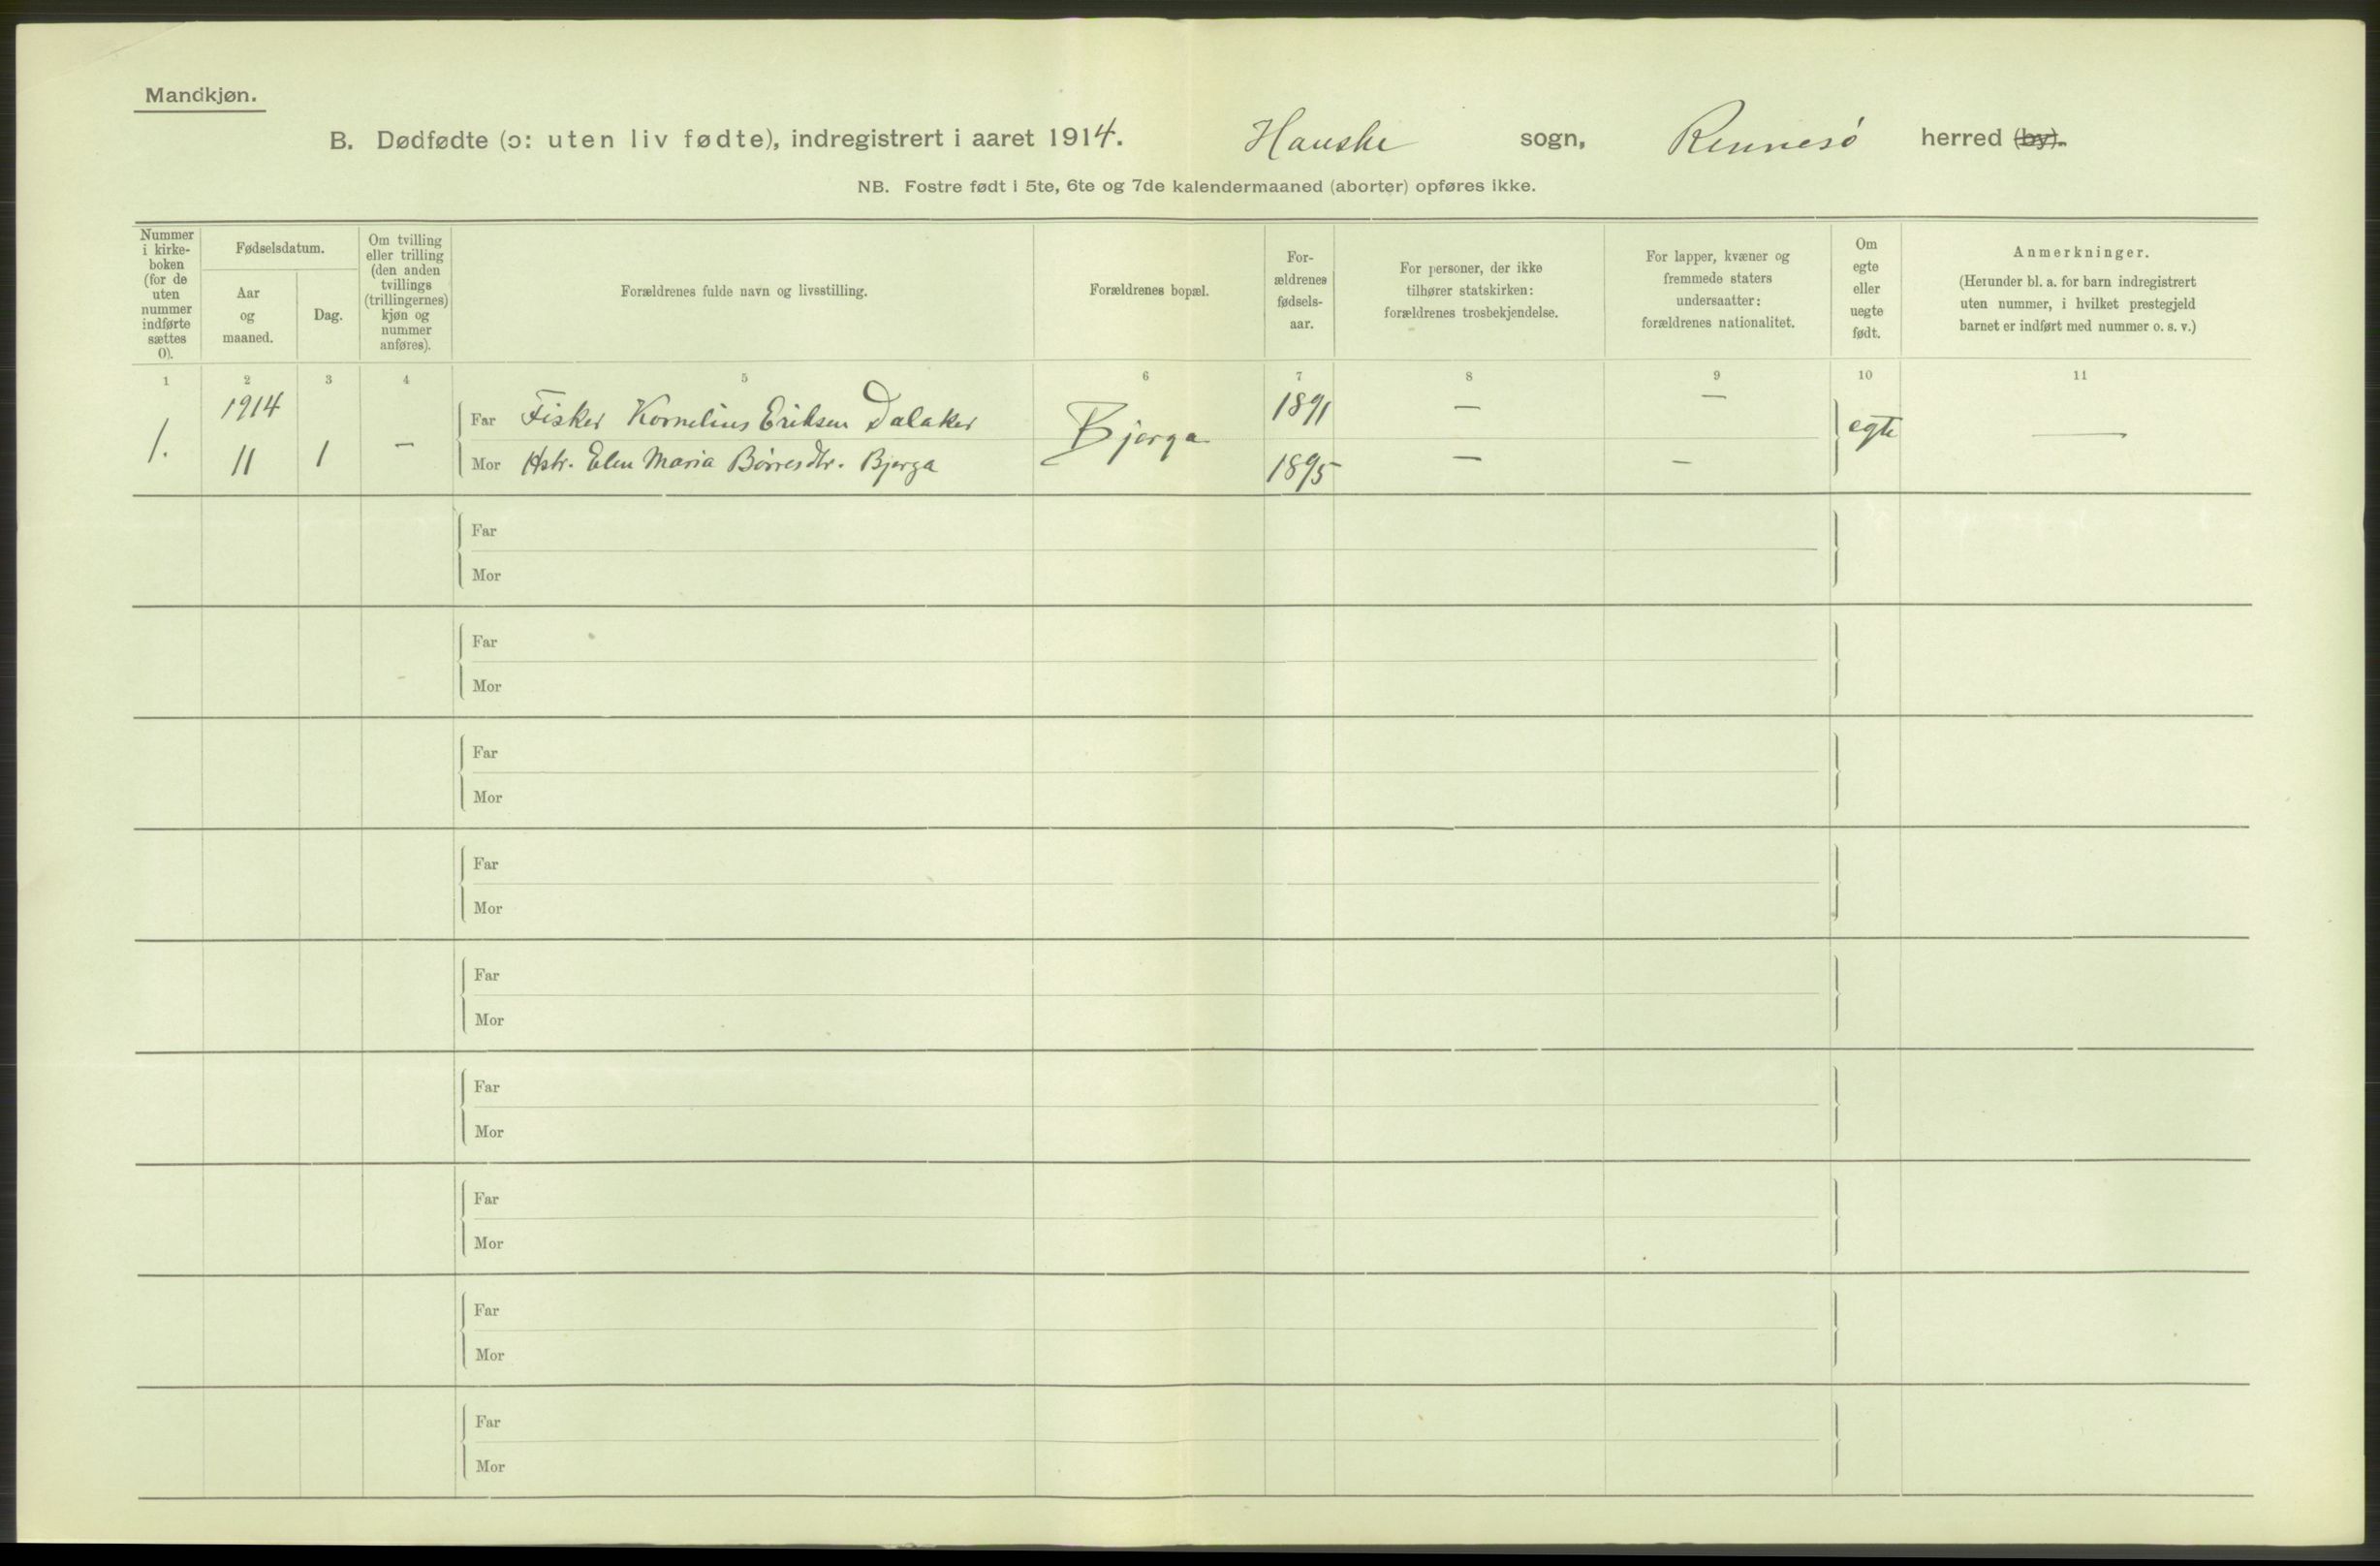 Mandkjøn.
B. Dødfødte (ɔ: uten liv fødte), indregistrert i aaret 1914. Hauske sogn, Rennesó herred (by).
NB. Fostre født i 5te, 6te og 7de kalendermaaned (aborter) opføres ikke.
Nummer
i kirke-
boken
(for de
uten
nummer
indførte
sættes
0).
Fødselsdatum.
Aar
og
maaned.
Dag.
Om tvilling
eller trilling
(den anden
tvillings
(trillingernes)
kjøn og
nummer
anføres).
Forældrenes fulde navn og livsstilling.
Forældrenes bopæl.
For-
ældrenes
fødsels-
aar.
For personer, der ikke
tilhører statskirken:
forældrenes trosbekjendelse.
For lapper, kvæner og
fremmede staters
undersaatter:
forældrenes nationalitet.
Om
egte
eller
uegte
født.
Anmerkninger.
(Herunder bl. a. for barn indregistrert
uten nummer, i hvilket prestegjeld
barnet er indført med nummer o. s. v.)
1 2 3 4 5 6 7 8 9 10 11
1.
1914
11
1
—
Far Fisker Kornelius Eriksen Dalaker
Mor Hstr. Elen Maria Børresdtr. Bjerga
Bjerga
1891
1895
—
—
—
—
egte
—
Far
Mor
Far
Mor
Far
Mor
Far
Mor
Far
Mor
Far
Mor
Far
Mor
Far
Mor
Far
Mor